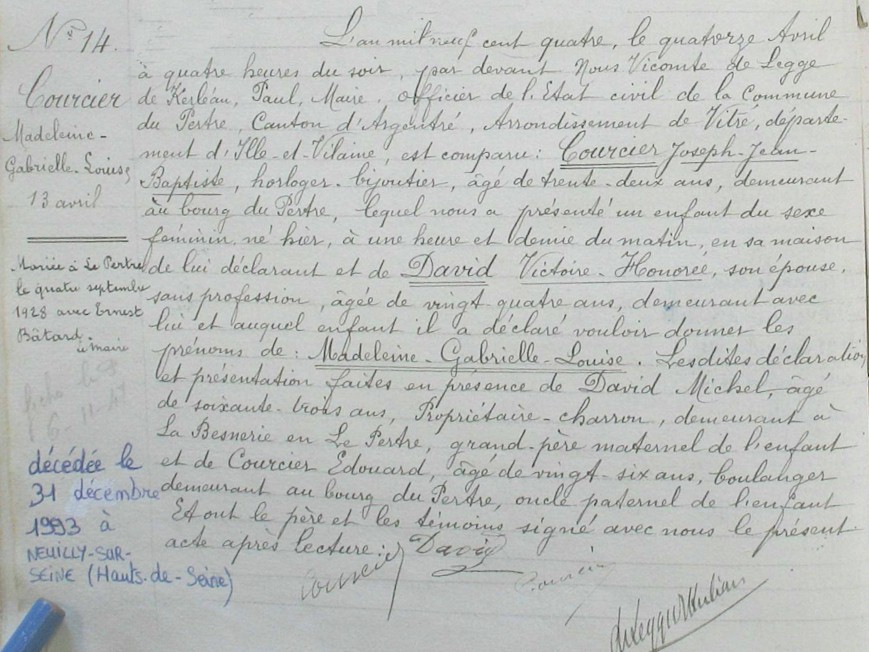 N° 14.
Courcier
Madeleine-
Gabrielle-Louise
13 avril
Mariée à Le Pertre
le quatre septembre
1928 avec Ernest
Bâtard
décédée le
31 décembre
1993 à
NEUILLY-SUR-
SEINE (Hauts-de-Seine)
L'an mil neuf cent quatre, le quatorze Avril
à quatre heures du soir, par devant Nous Vicomte de Legge
de Kerléau, Paul, Maire, officier de l'Etat civil de la Commune
du Pertre, Canton d'Argentré, Arrondissement de Vitré, départe-
ment d'Ille-et-Vilaine, est comparu: Courcier Joseph-Jean-
Baptiste, horloger-bijoutier, âgé de trente-deux ans, demeurant
au bourg du Pertre, lequel nous a présenté un enfant du sexe
féminin né hier, à une heure et demie du matin, en sa maison
de lui déclarant et de David Victoire-Honorée, son épouse,
sans profession, âgée de vingt-quatre ans, demeurant avec
lui et auquel enfant il a déclaré vouloir donner les
prénoms de: Madeleine-Gabrielle-Louise. Lesdites déclaration
et présentation faites en présence de David Michel, âgé
de soixante-trois ans, Propriétaire-charron, demeurant à
La Besnerie en Le Pertre, grand-père maternel de l'enfant
et de Courcier Edouard, âgé de vingt-six ans, boulanger
demeurant au bourg du Pertre, oncle paternel de l'enfant
Et ont le père et les témoins signé avec nous le présent
acte après lecture:
Courcier David Courcier